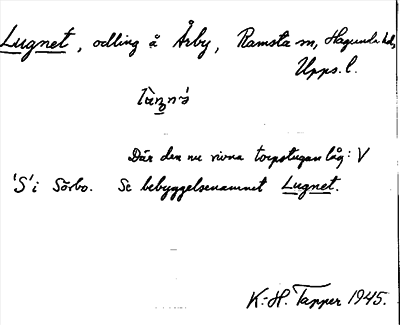 Lugnet, odling å Årby, Ramsta sn, Hagunda hd,
Upps. l.
Där den nu rivna torpstugan låg: V
'S' i Sörbo. Se bebyggelsenamnet Lugnet.
K.-H. Tapper 1945.